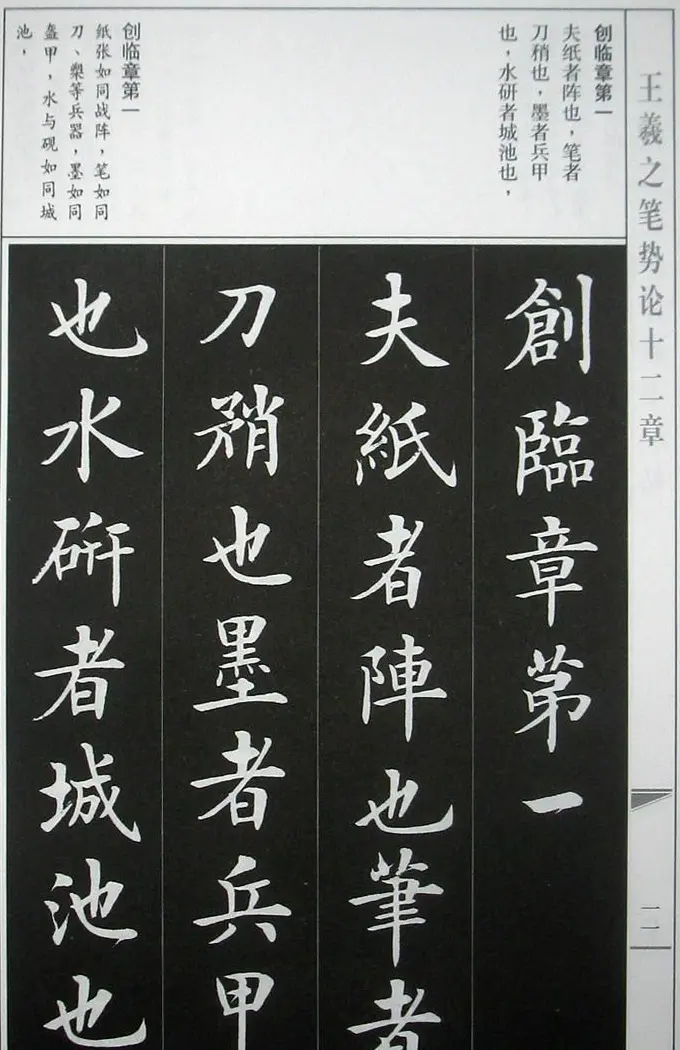 王羲之笔势论十二章
二
创临章第一
夫纸者阵也，笔者
刀稍也，墨者兵甲
也，水研者城池也，
创临章第一
纸张如同战阵，笔如同
刀、槊等兵器，墨如同
盔甲，水与砚如同城
池，
創臨章第一
夫紙者陣也筆者
刀矟也墨者兵甲
也水研者城池也